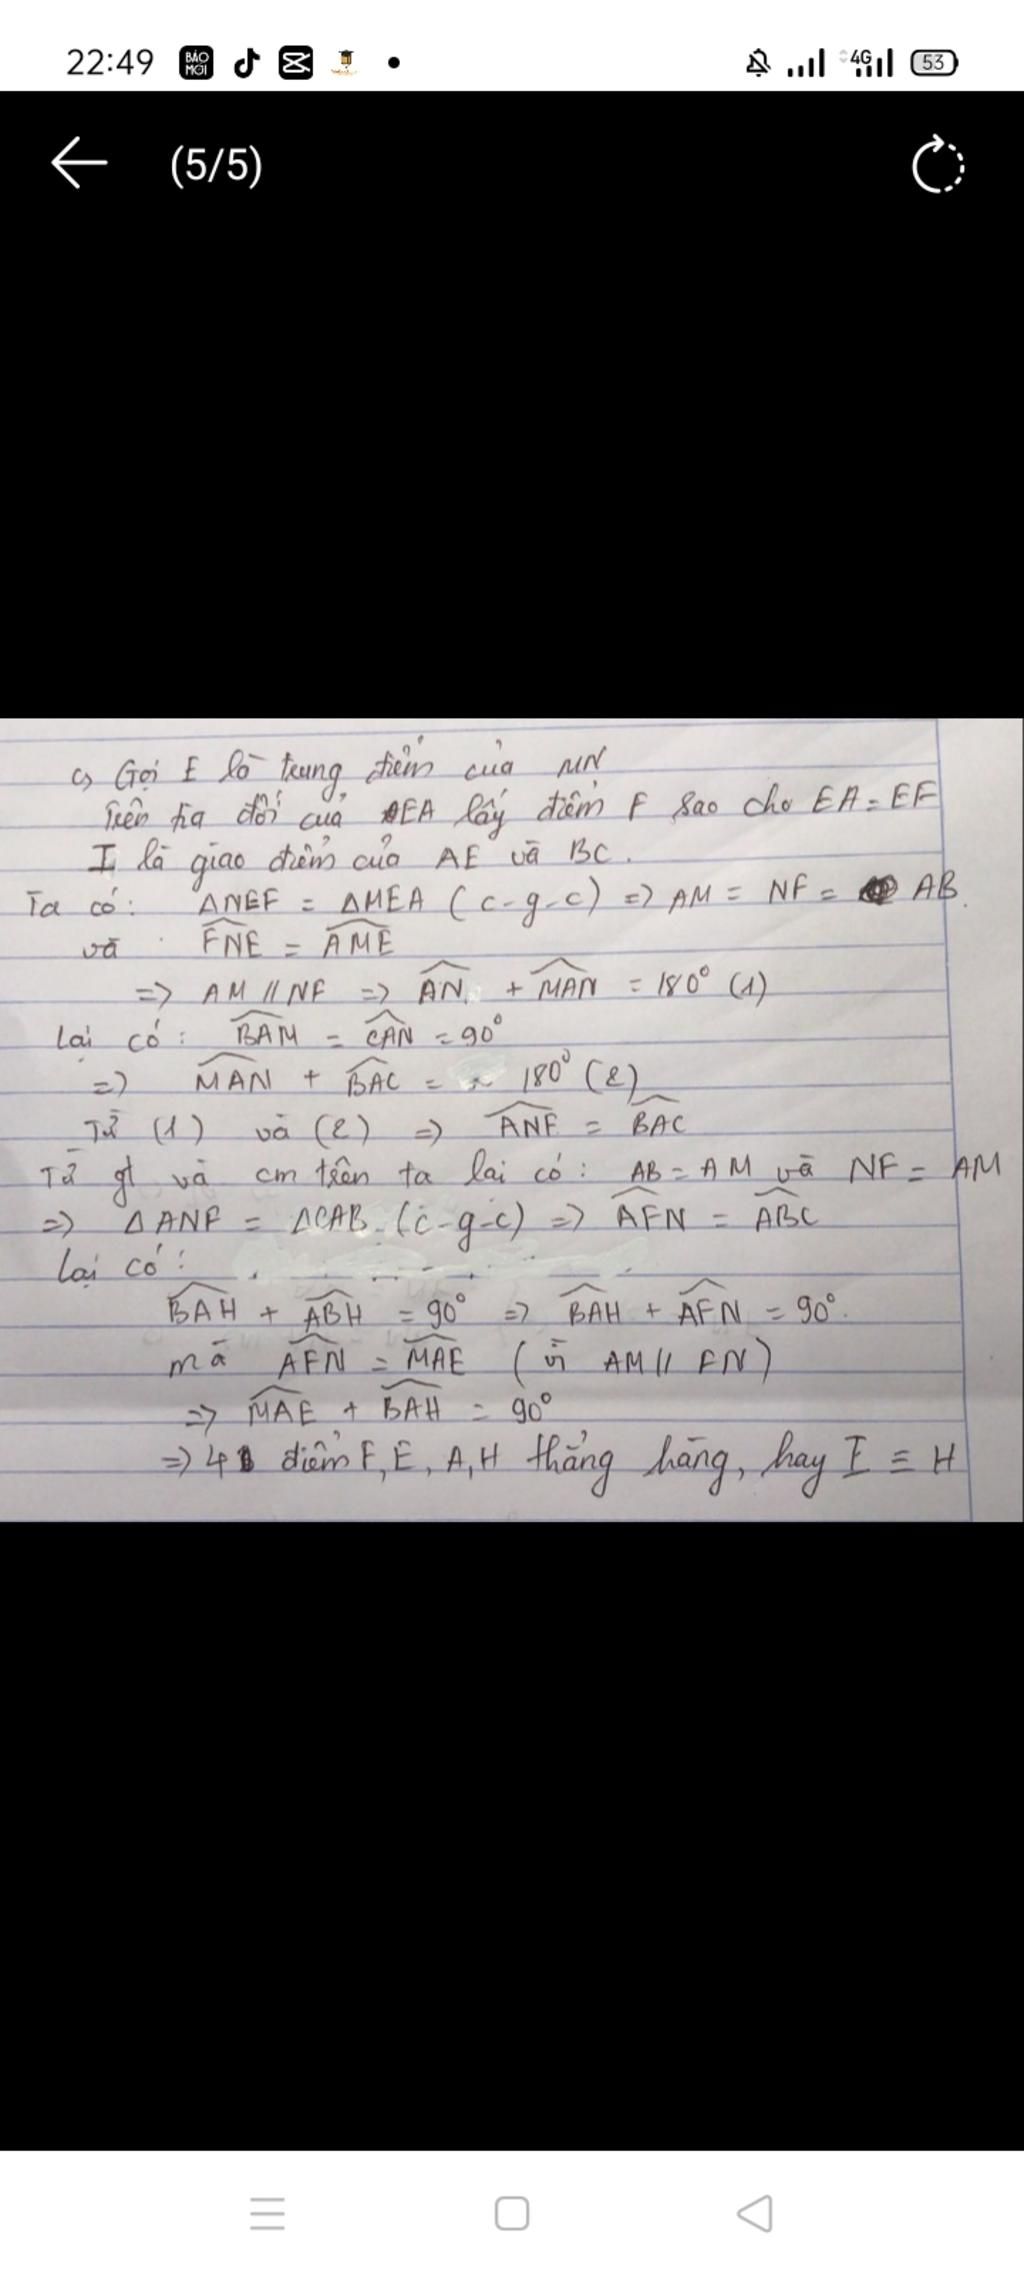 22:49 BÁO MỚI 4G 53
(5/5)
c, Gọi E là trung điểm của MN
Trên tia đối của EA lấy điểm F sao cho EA = EF
I là giao điểm của AE và BC.
Ta có: ΔNEF = ΔMEA (c-g-c) => AM = NF = AB.
và FNE = AME
=> AM // NF => AN + MAN = 180° (1)
Lại có: BAM = CAN = 90°
=> MAN + BAC = 180° (2)
Từ (1) và (2) => ANF = BAC
Từ gt và cm trên ta lại có: AB = AM và NF = AM
=> ΔANF = ΔCAB (c-g-c) => AFN = ABC
Lại có:
BAH + ABH = 90° => BAH + AFN = 90°.
mà AFN = MAE (vì AM // FN)
=> MAE + BAH = 90°
=> 4 điểm F, E, A, H thẳng hàng, hay I ≡ H